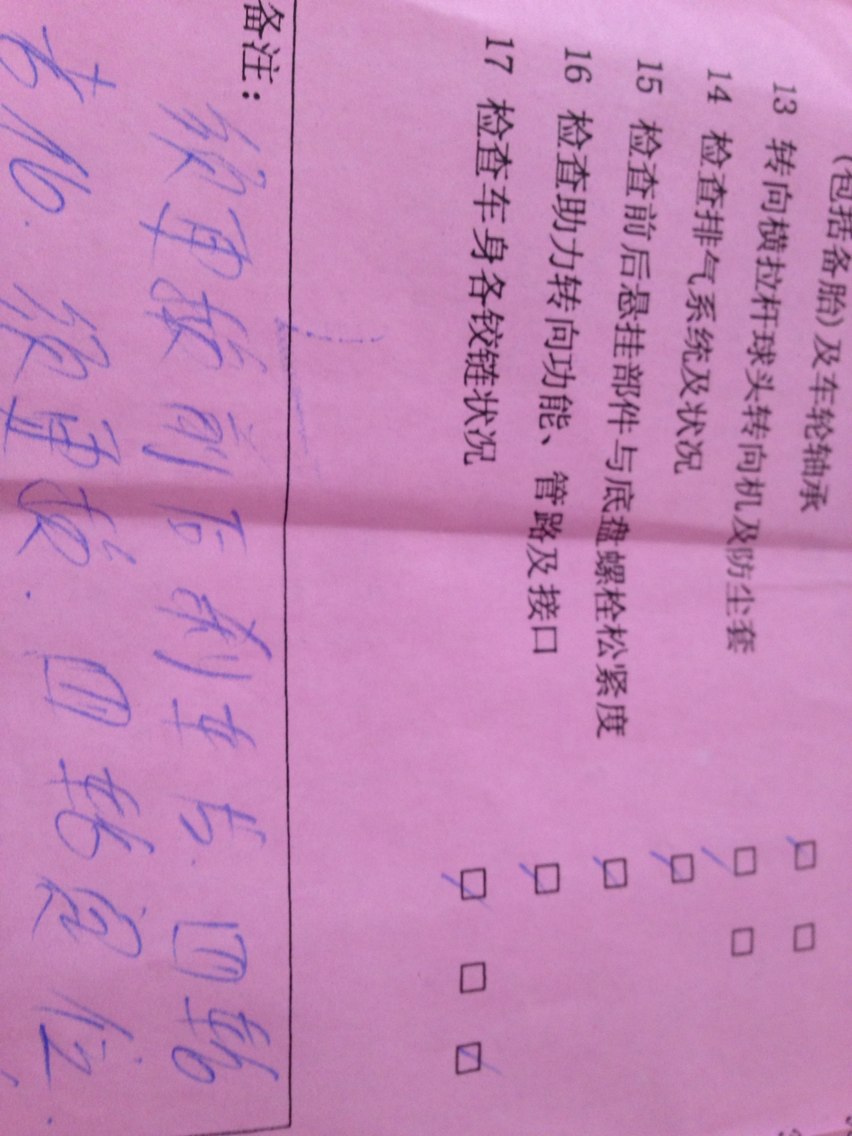 (包括备胎)及车轮轴承
13 转向横拉杆球头转向机及防尘套
14 检查排气系统及状况
15 检查前后悬挂部件与底盘螺栓松紧度
16 检查助力转向功能、管路及接口
17 检查车身各铰链状况
备注:
须更换前后刹车片.四轮
须更换.四轮定位.